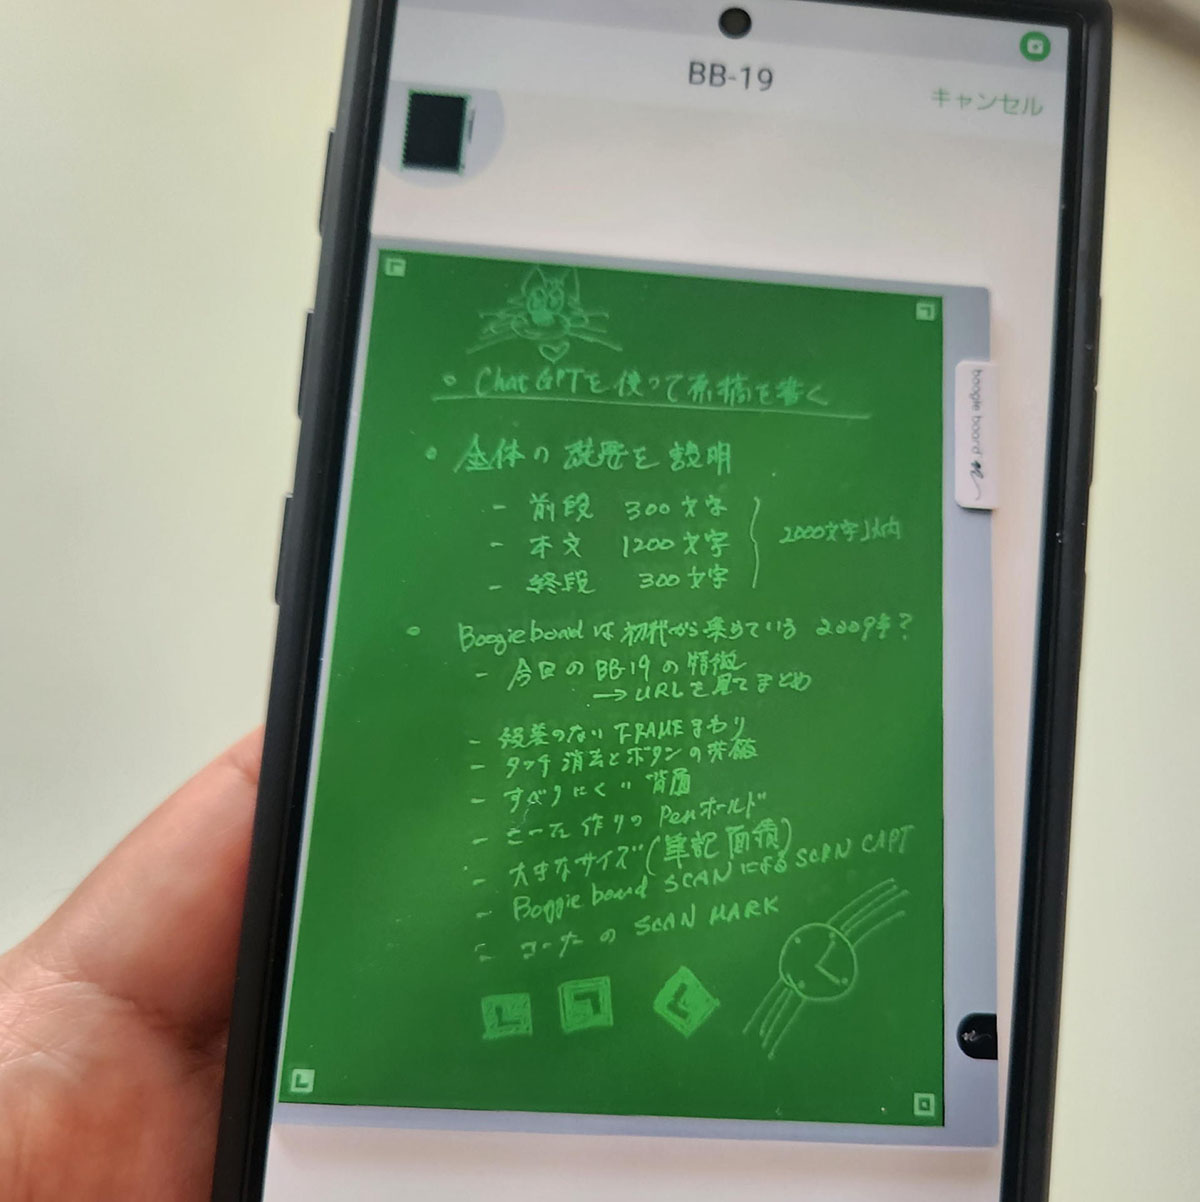 BB-19
キャンセル
○ ChatGPTを使って原稿を書く
・ 全体の概要を説明
- 前段 300文字
- 本文 1200文字
- 終段 300文字
2000文字以内
・ Boogieboardは初代から集めている 2009年?
- 今回のBB-19の特徴
→URLを見てまとめ
- 段差のないFRAMEまわり
- タッチ消去とボタンの
- すべりにくい背面
- こった作りのPenホールド
- 大きなサイズ(筆記面積)
- Boggie board SCANによるSCAN CAPT
- コーナーのSCAN MARK
boogie board